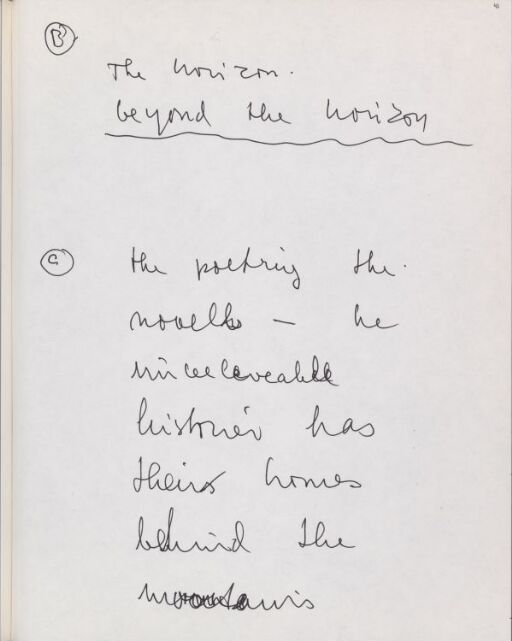 B
The horizon.
beyond the horizon
C
the poetriy the.
novells – he
unbeleaveable
histories has
theirs homes
behind the
mountains